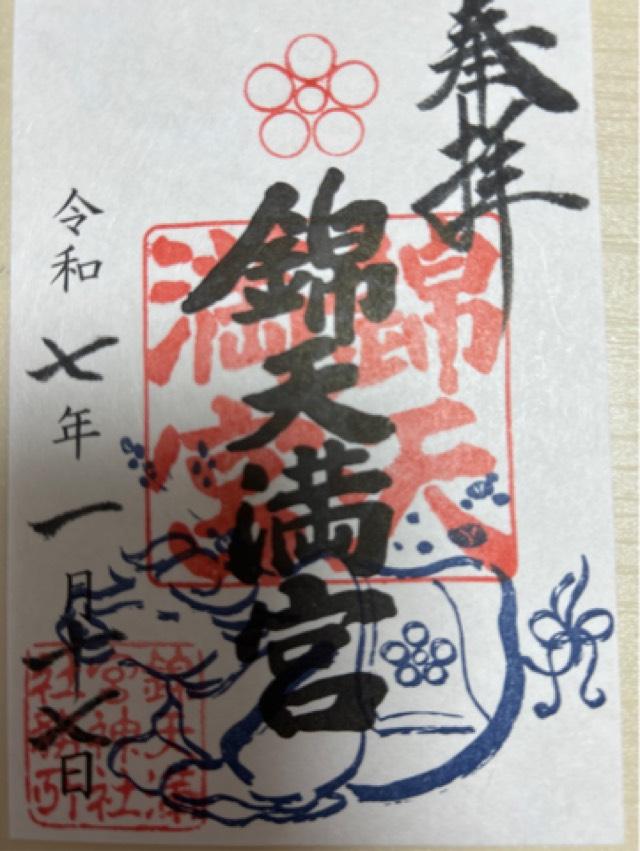 奉拝
錦天満宮
錦天満宮
令和七年一月十七日
錦天満宮神社社務所